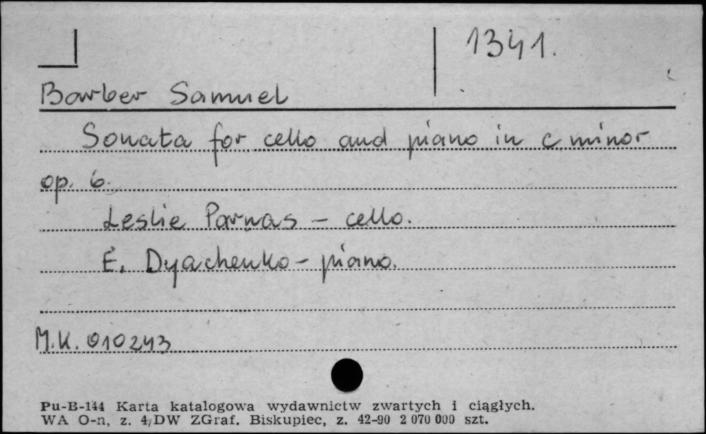 1341.
Barber Samuel
Sonata for cello and piano in c minor
op. 6.
Leslie Parnas - cello.
E. Dyachenko - piano.
M.K. 010243
Pu-B-144 Karta katalogowa wydawnictw zwartych i ciągłych.
WA O-n, z. 4/DW ZGraf. Biskupiec, z. 42-90 2 070 000 szt.